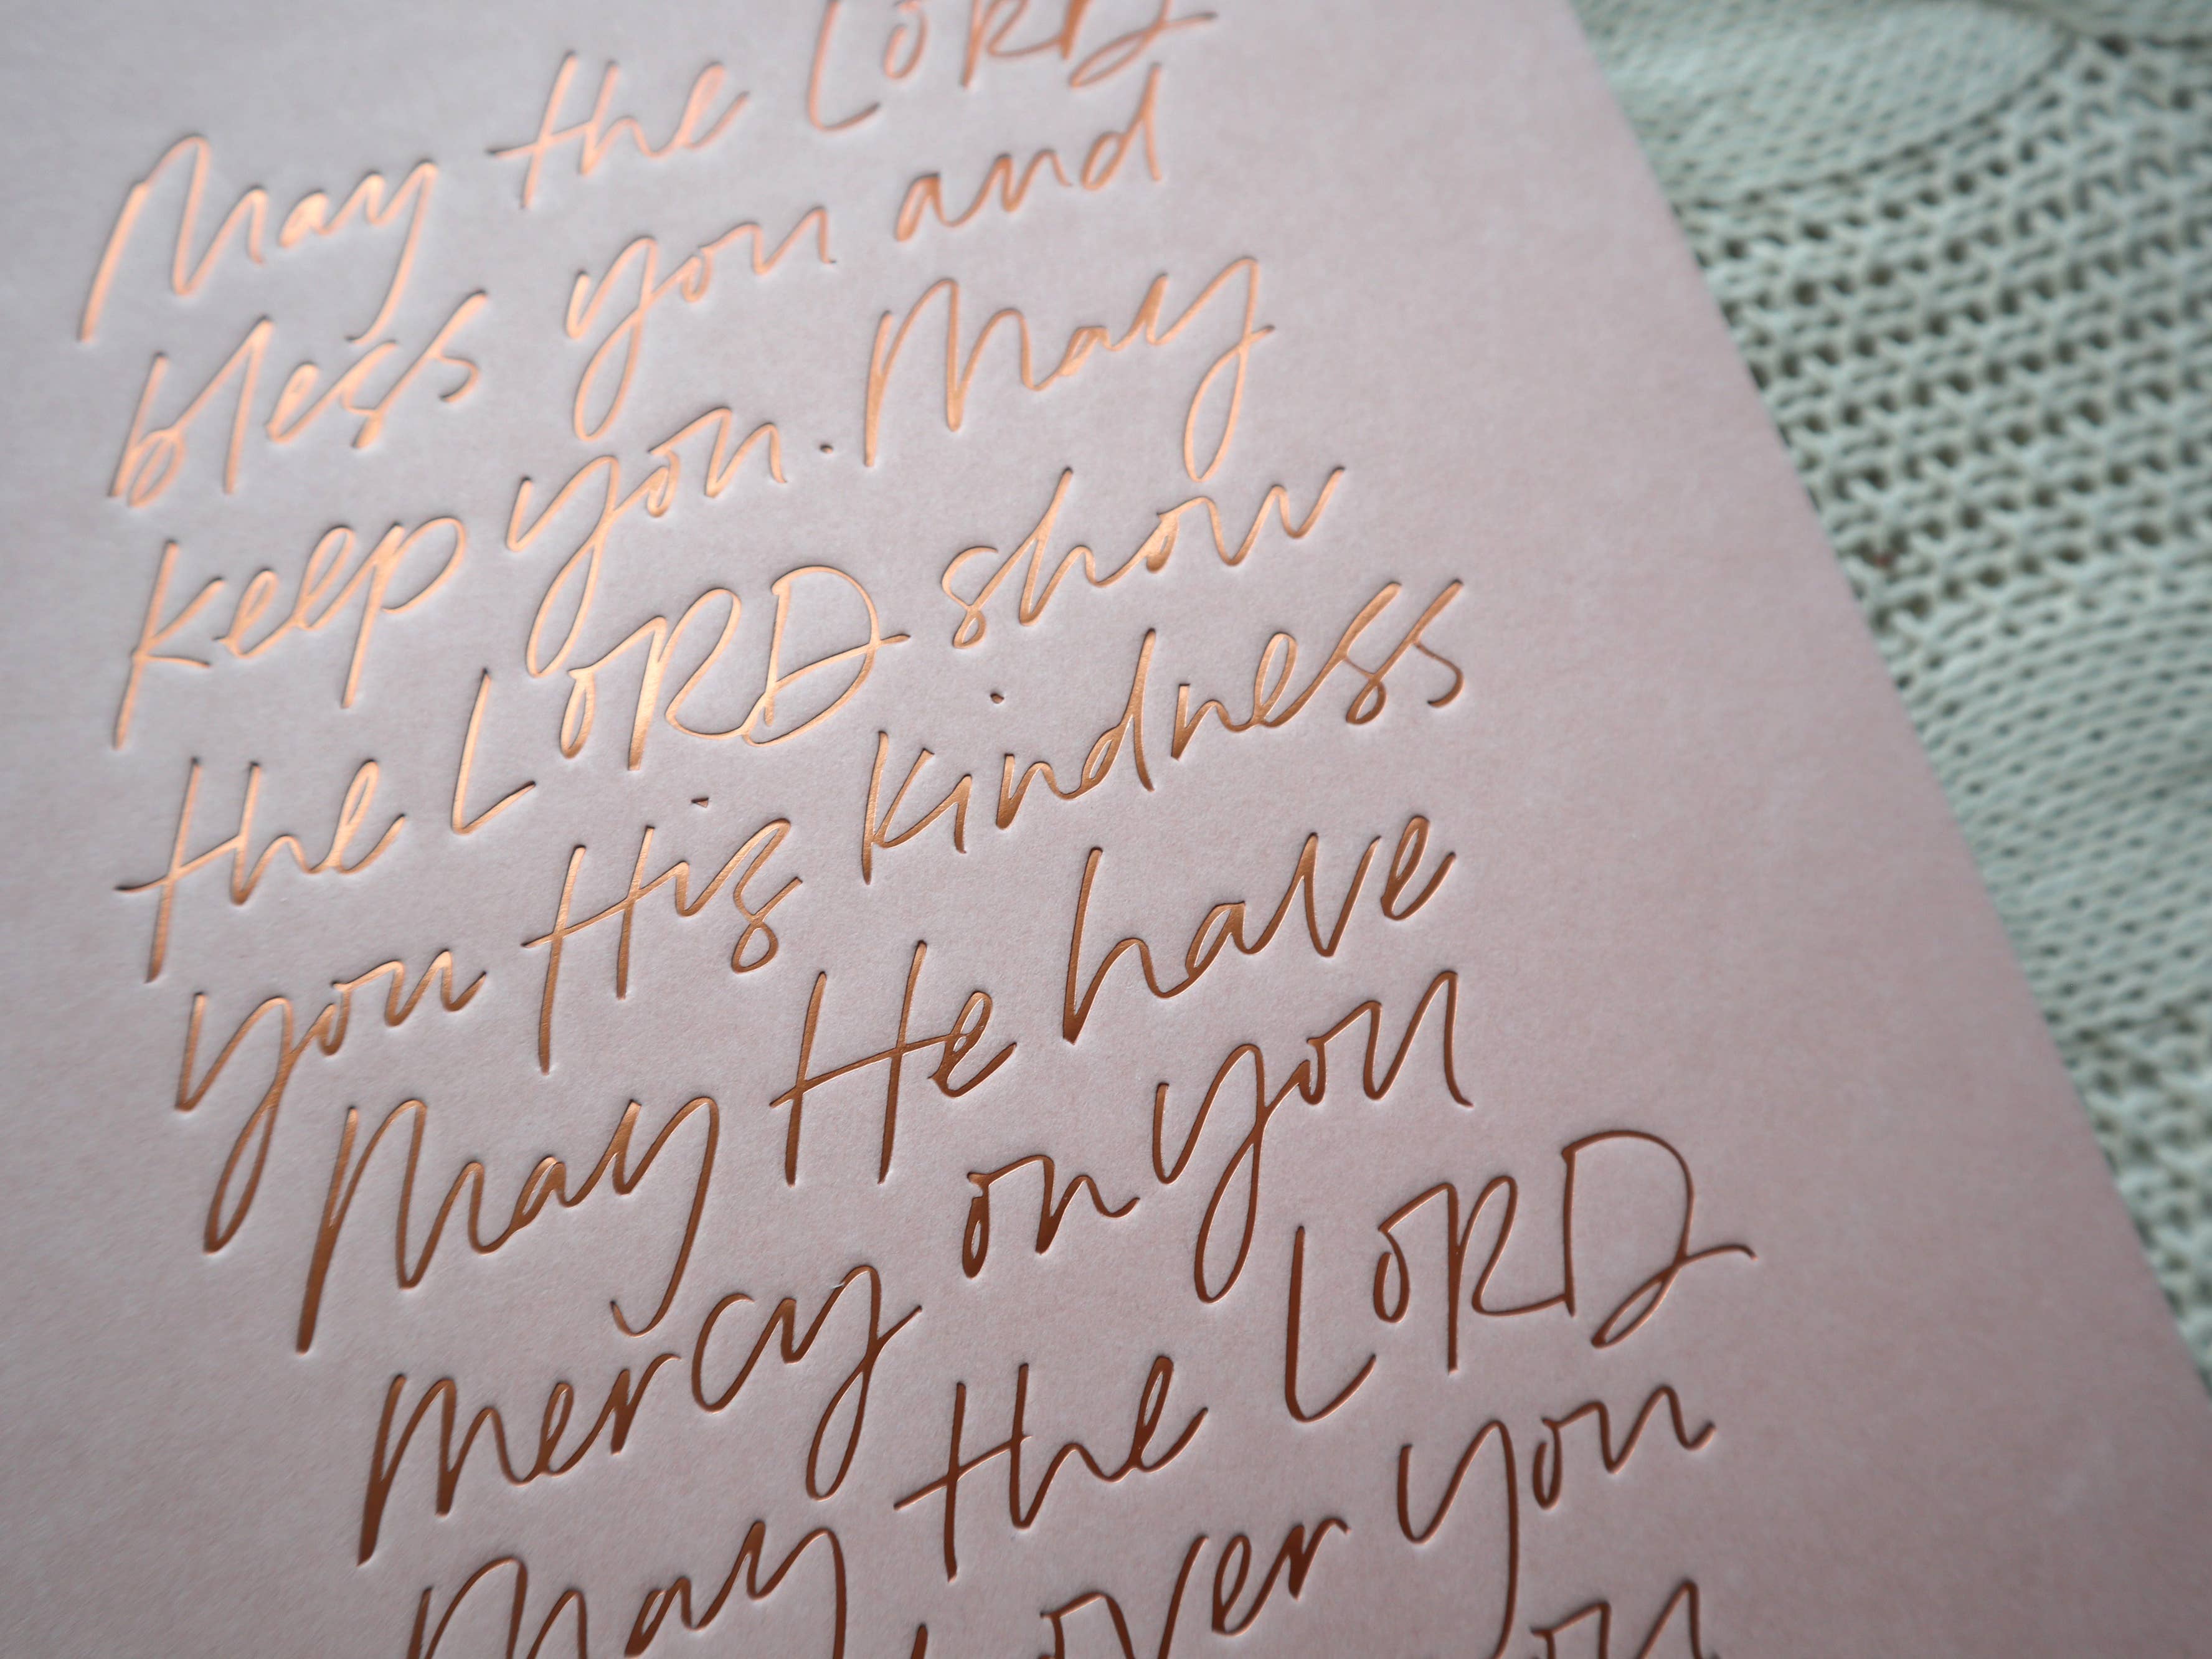 May the LORD
bless you and
keep you. May
the LORD show
you His kindness
May He have
mercy on you
May the LORD
over you